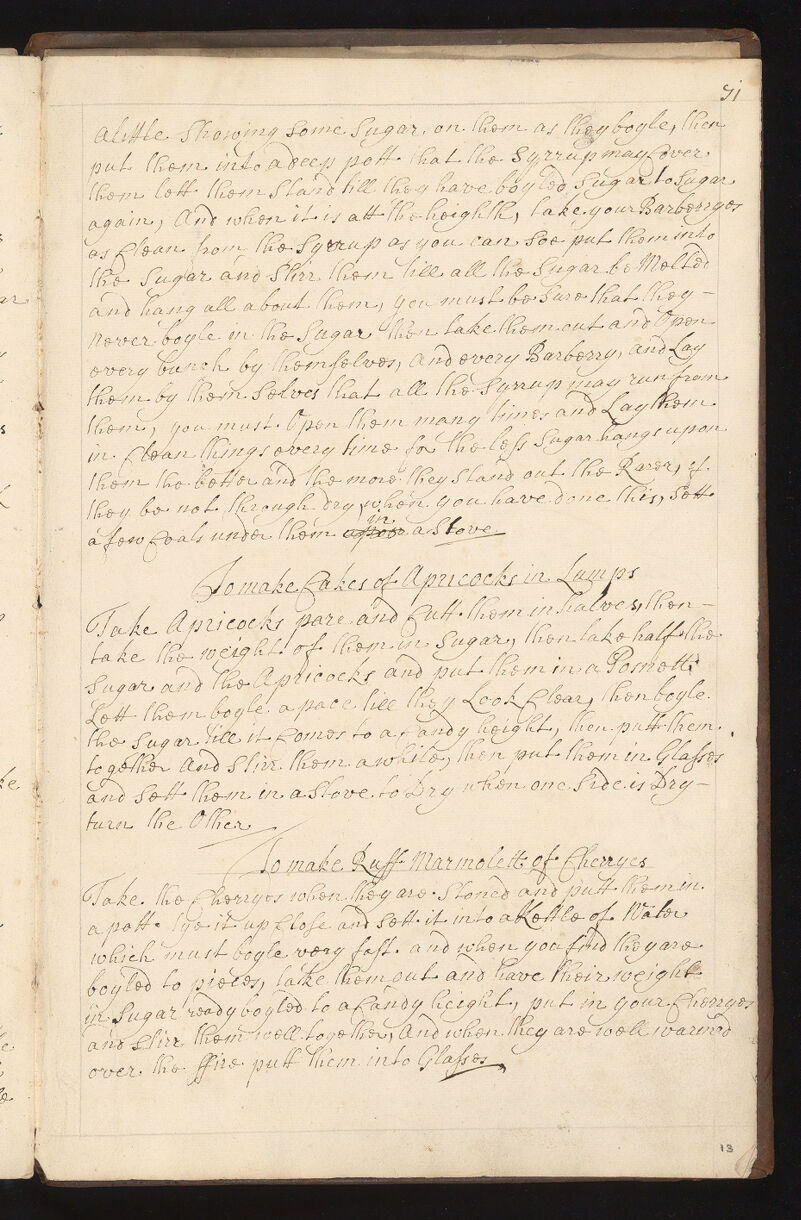 31
a little throwing some Sugar, on them as they boyle, then
put them into a deep pott that the Syrrup may Cover
them lett them Stand till they have boyled, Sugar to Sugar
again, And when it is att the heighth, take your Barberryes
as Clean from the Syrrup as you can Soe put them into
the Sugar and Stirr them till all the Sugar be Melted
and hang all about them, you must be Sure that they –
never boyle in the Sugar then take them out and Open
every bunch by themselves, And every Barberry, and Lay
them by them Selves that all the Syrrup may run from
them, you must Open them many times and Lay them
in Clean things every time for the less Sugar hangs upon
them the better and the more they Stand out the Rarer, if
they be not through dry, when you have done this, Sett
a few Coals under them in a Stove
To make Cakes of Apricocks in Lumps
Take Apricocks pare and Cutt them in halves, then –
take the weight of them in Sugar, then take half the
Sugar and the Apricocks and put them in a Posnett
Lett them boyle a pace till they Look Clear, then boyle
the Sugar till it Comes to a Candy height, then putt them
together And Stirr them a while, then put them in Glasses
and Sett them in a Stove to Dry when one Side is Dry –
turn the Other
To make Ruff Marmolett of Cherryes
Take the Cherryes when they are Stoned and putt them in
a pott tye it up Close and Sett it into a Kettle of Water
which must boyle very fast and when you find they are
boyled to pieces, take them out and have their weight
in Sugar ready boyled to a Candy height, put in your Cherryes
and Stirr them well together, And when they are well warmed
over the ffire putt them into Glasses
13